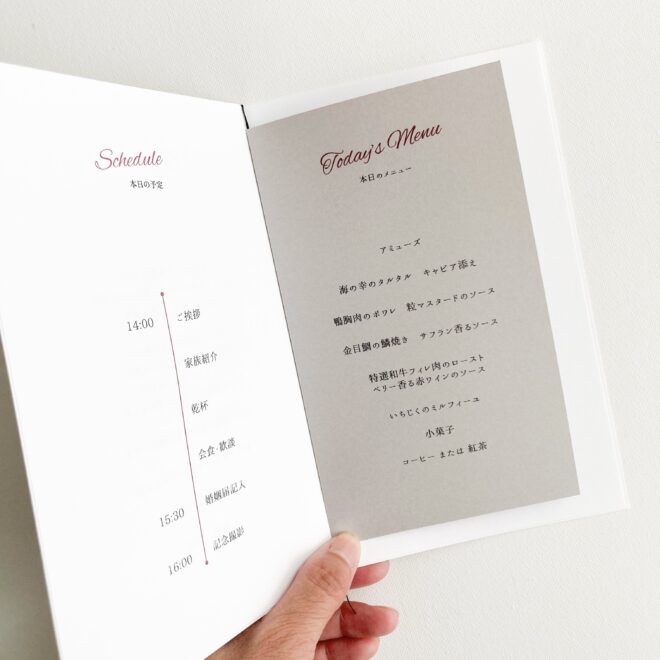 Schedule
本日の予定
14:00 ご挨拶
家族紹介
乾杯
会食・歓談
15:30 婚姻届記入
16:00 記念撮影
Today's Menu
本日のメニュー
アミューズ
海の幸のタルタル キャビア添え
鴨胸肉のポワレ 粒マスタードのソース
金目鯛の鱗焼き サフラン香るソース
特選和牛フィレ肉のロースト
ベリー香る赤ワインのソース
いちじくのミルフィーユ
小菓子
コーヒー または 紅茶